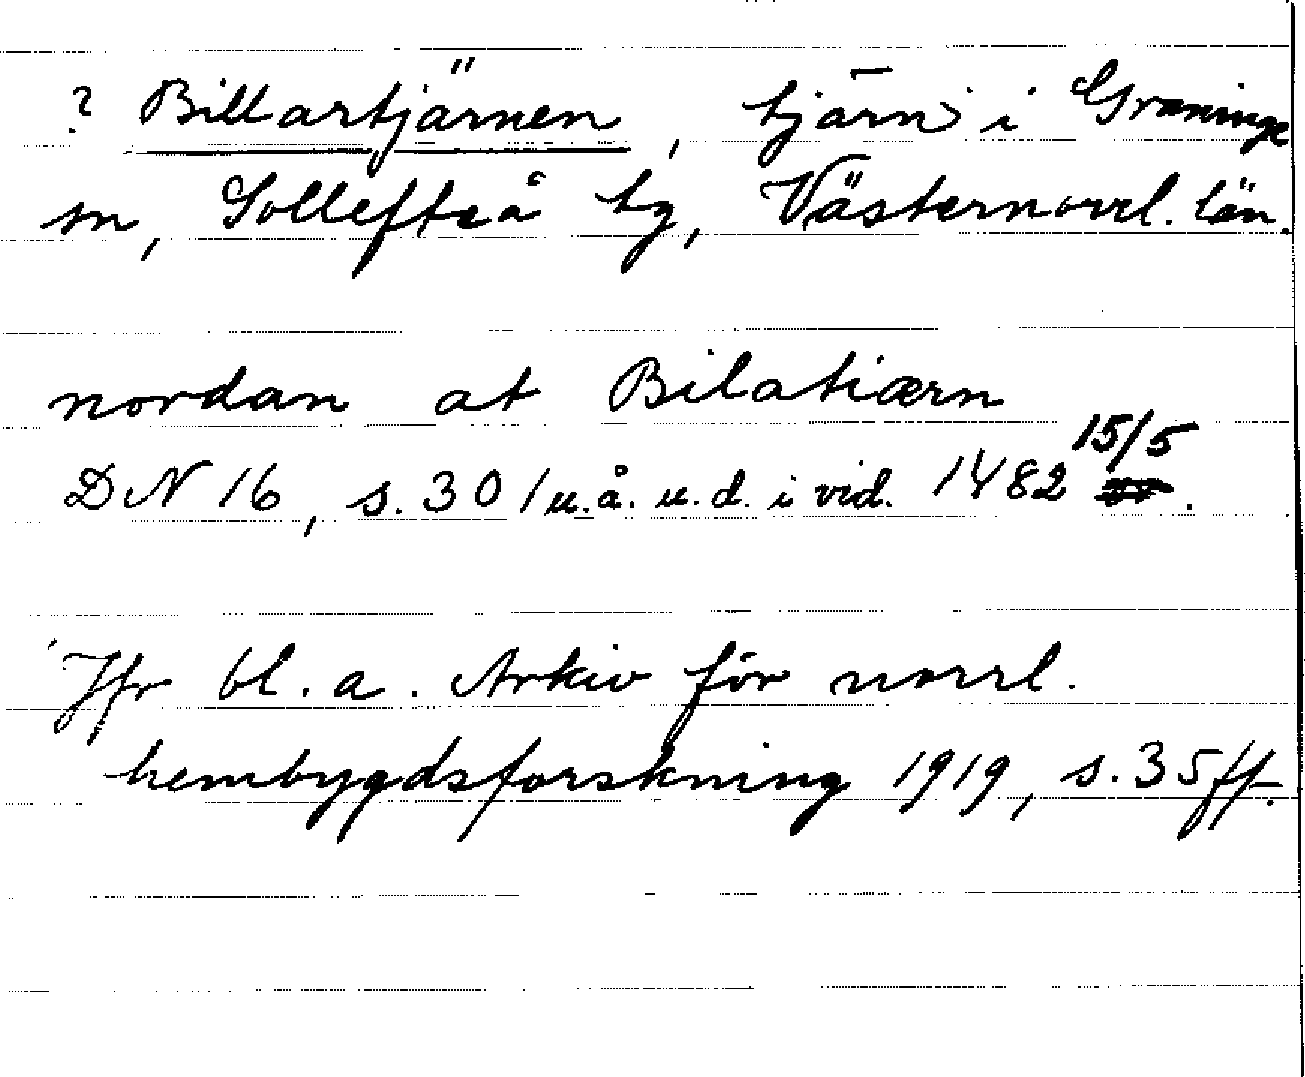 ? Billartjärnen, tjärn i Graninge
sn, Sollefteå tg, Västernorrl. län.
nordan at Bilatiærn
DN 16, s. 301 u.å. u.d. i vid. 1482 15/5.
Jfr bl. a. Arkiv för norrl.
hembygdsforskning 1919, s. 35 ff.